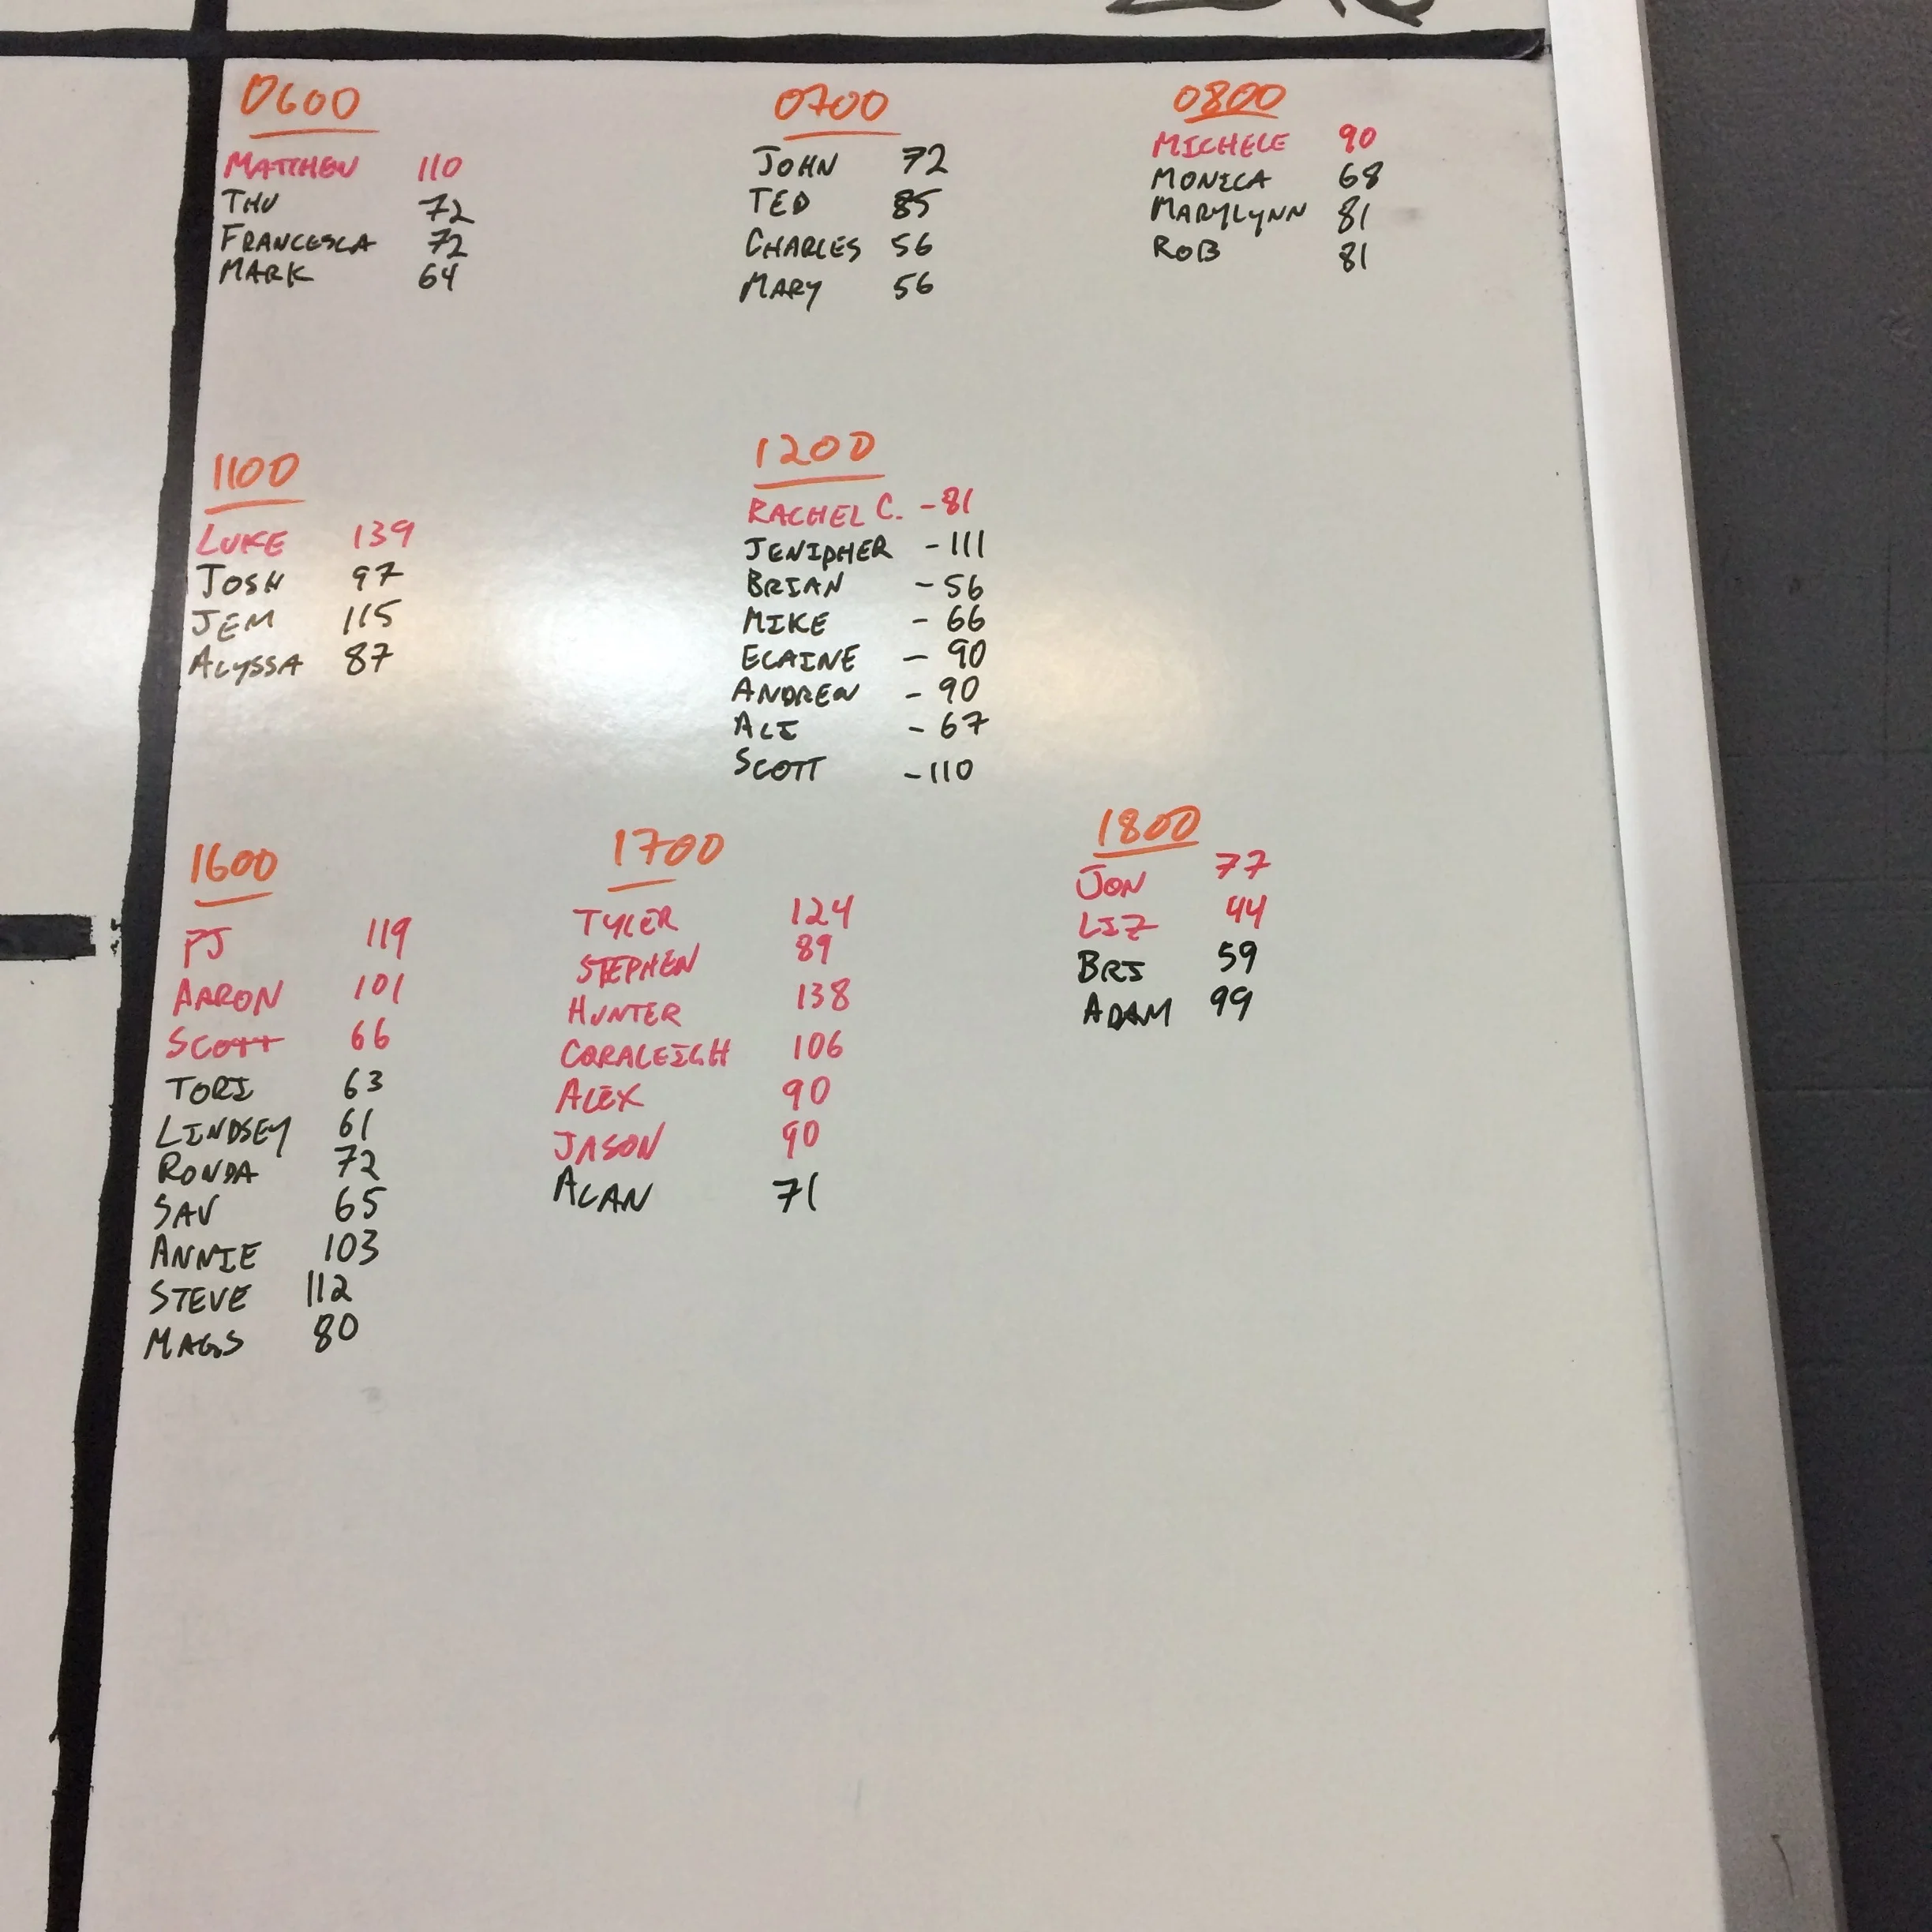 0600
MATTHEW 110
THU 72
FRANCESCA 72
MARK 64
0700
JOHN 72
TED 85
CHARLES 56
MARY 56
0800
MICHELE 90
MONICA 68
MARYLYNN 81
ROB 81
1100
LUKE 139
JOSH 97
JEM 115
ALYSSA 87
1200
RACHEL C. - 81
JENIPHER - 111
BRIAN - 56
MIKE - 66
ELAINE - 90
ANDREW - 90
ALI - 67
SCOTT - 110
1600
PJ 119
AARON 101
SCOTT 66
TORI 63
LINDSEY 61
RONDA 72
SAV 65
ANNIE 103
STEVE 112
MAGS 80
1700
TYLER 124
STEPHEN 89
HUNTER 138
CORALEIGH 106
ALEX 90
JASON 90
ALAN 71
1800
JON 77
LIZ 44
BRI 59
ADAM 99